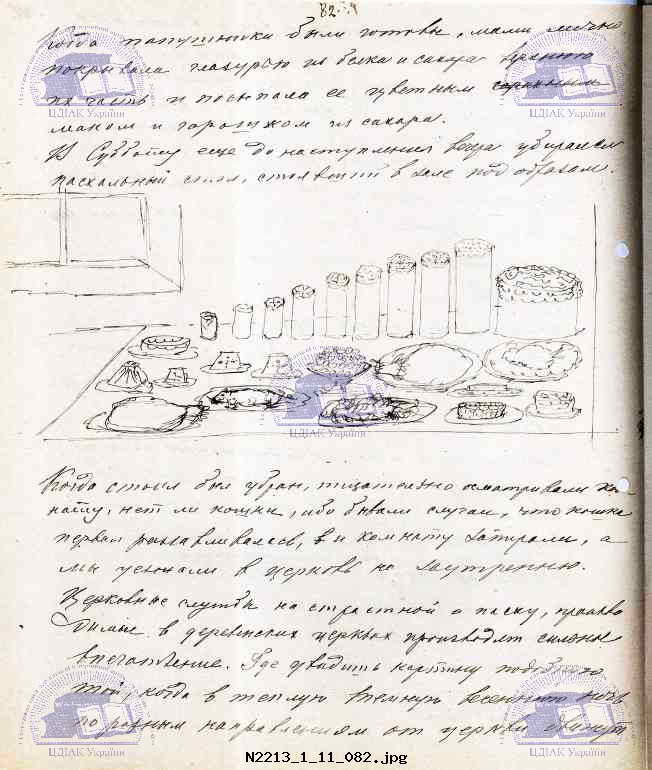 82.
Когда папушники были готовы, мама
покрывала глазурью из белка и сахара верхнюю
их часть и посыпала ее цветным
маком и горошком из сахара.
В Субботу еще до наступления вечера убирался
пасхальный стол, стоявший в зале под образами.
Когда стол был убран, тщательно осматривали ком-
нату, нет ли кошки, ибо бывали случаи, что кошка
первая разгавливалась, и комнату запирали, а
мы уезжали в церковь на заутреню.
Церковные службы на страстной и пасху, произво
димые в деревенских церквах производят сильное
впечатление. Где увидишь картину подобную
той, когда в теплую темную весеннюю ночь
по разным направлениям от церкви движутся
ЦДІАК України
ЦДІАК України
ЦДІАК України
ЦДІАК України
ЦДІАК України
N2213_1_11_082.jpg